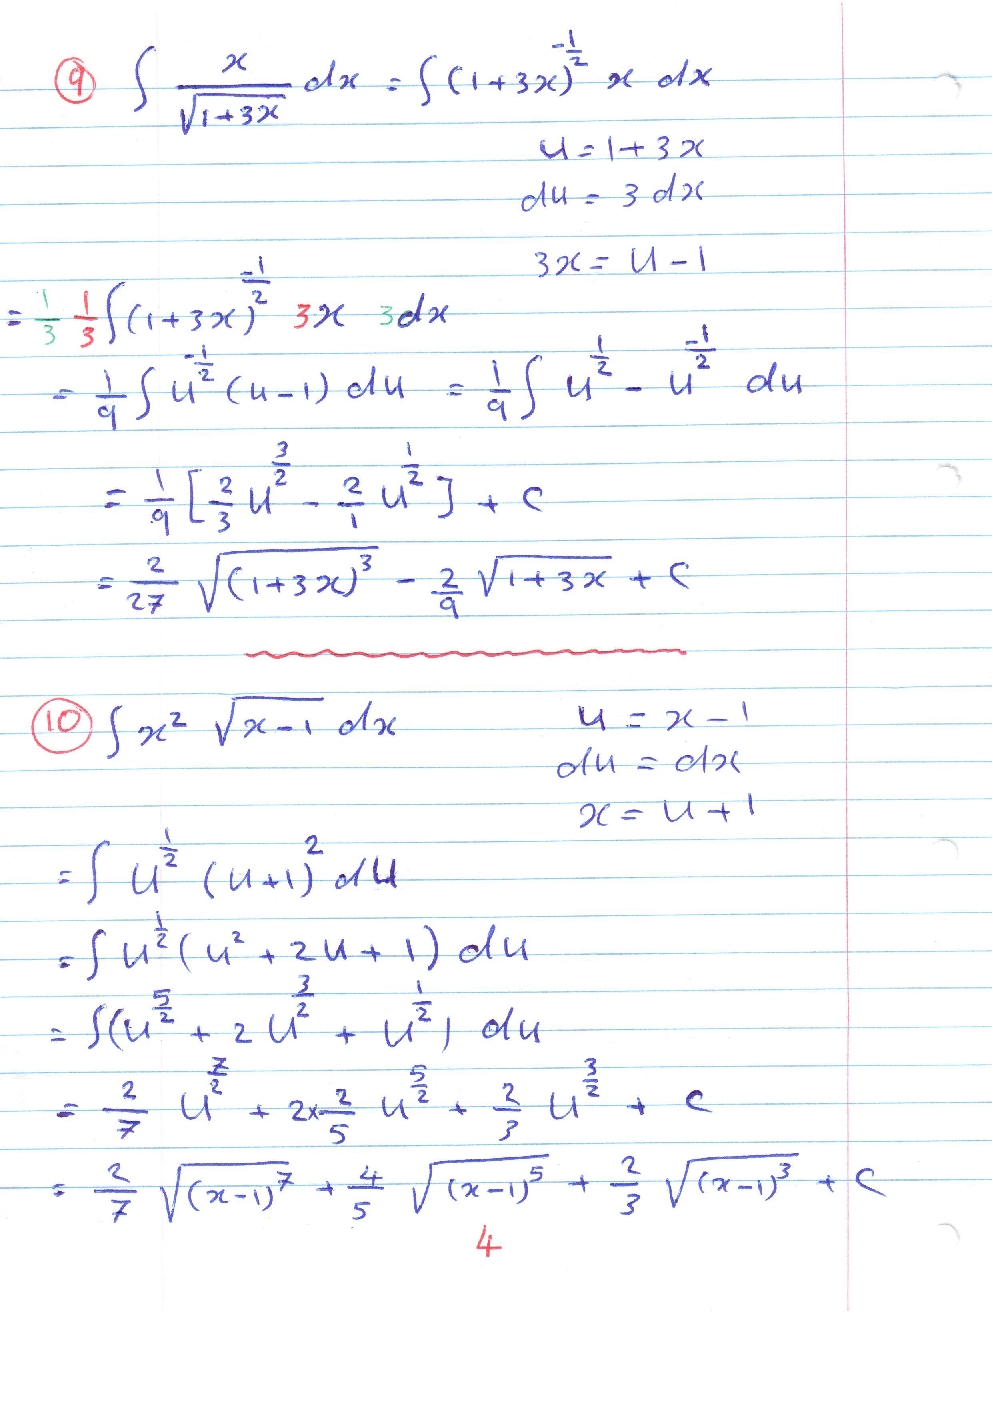 ⑨ ∫ x/√(1+3x) dx = ∫ (1+3x)^(-1/2) x dx
u = 1+3x
du = 3 dx
3x = u - 1
= 1/3 1/3 ∫ (1+3x)^(-1/2) 3x 3dx
= 1/9 ∫ u^(-1/2) (u-1) du = 1/9 ∫ u^(1/2) - u^(-1/2) du
= 1/9 [2/3 u^(3/2) - 2/1 u^(1/2)] + c
= 2/27 √((1+3x)^3) - 2/9 √(1+3x) + c
⑩ ∫ x² √(x-1) dx u = x-1
du = dx
x = u+1
= ∫ u^(1/2) (u+1)^2 du
= ∫ u^(1/2) (u² + 2u + 1) du
= ∫ (u^(5/2) + 2u^(3/2) + u^(1/2)) du
= 2/7 u^(7/2) + 2×2/5 u^(5/2) + 2/3 u^(3/2) + c
= 2/7 √((x-1)^7) + 4/5 √((x-1)^5) + 2/3 √((x-1)^3) + c
4